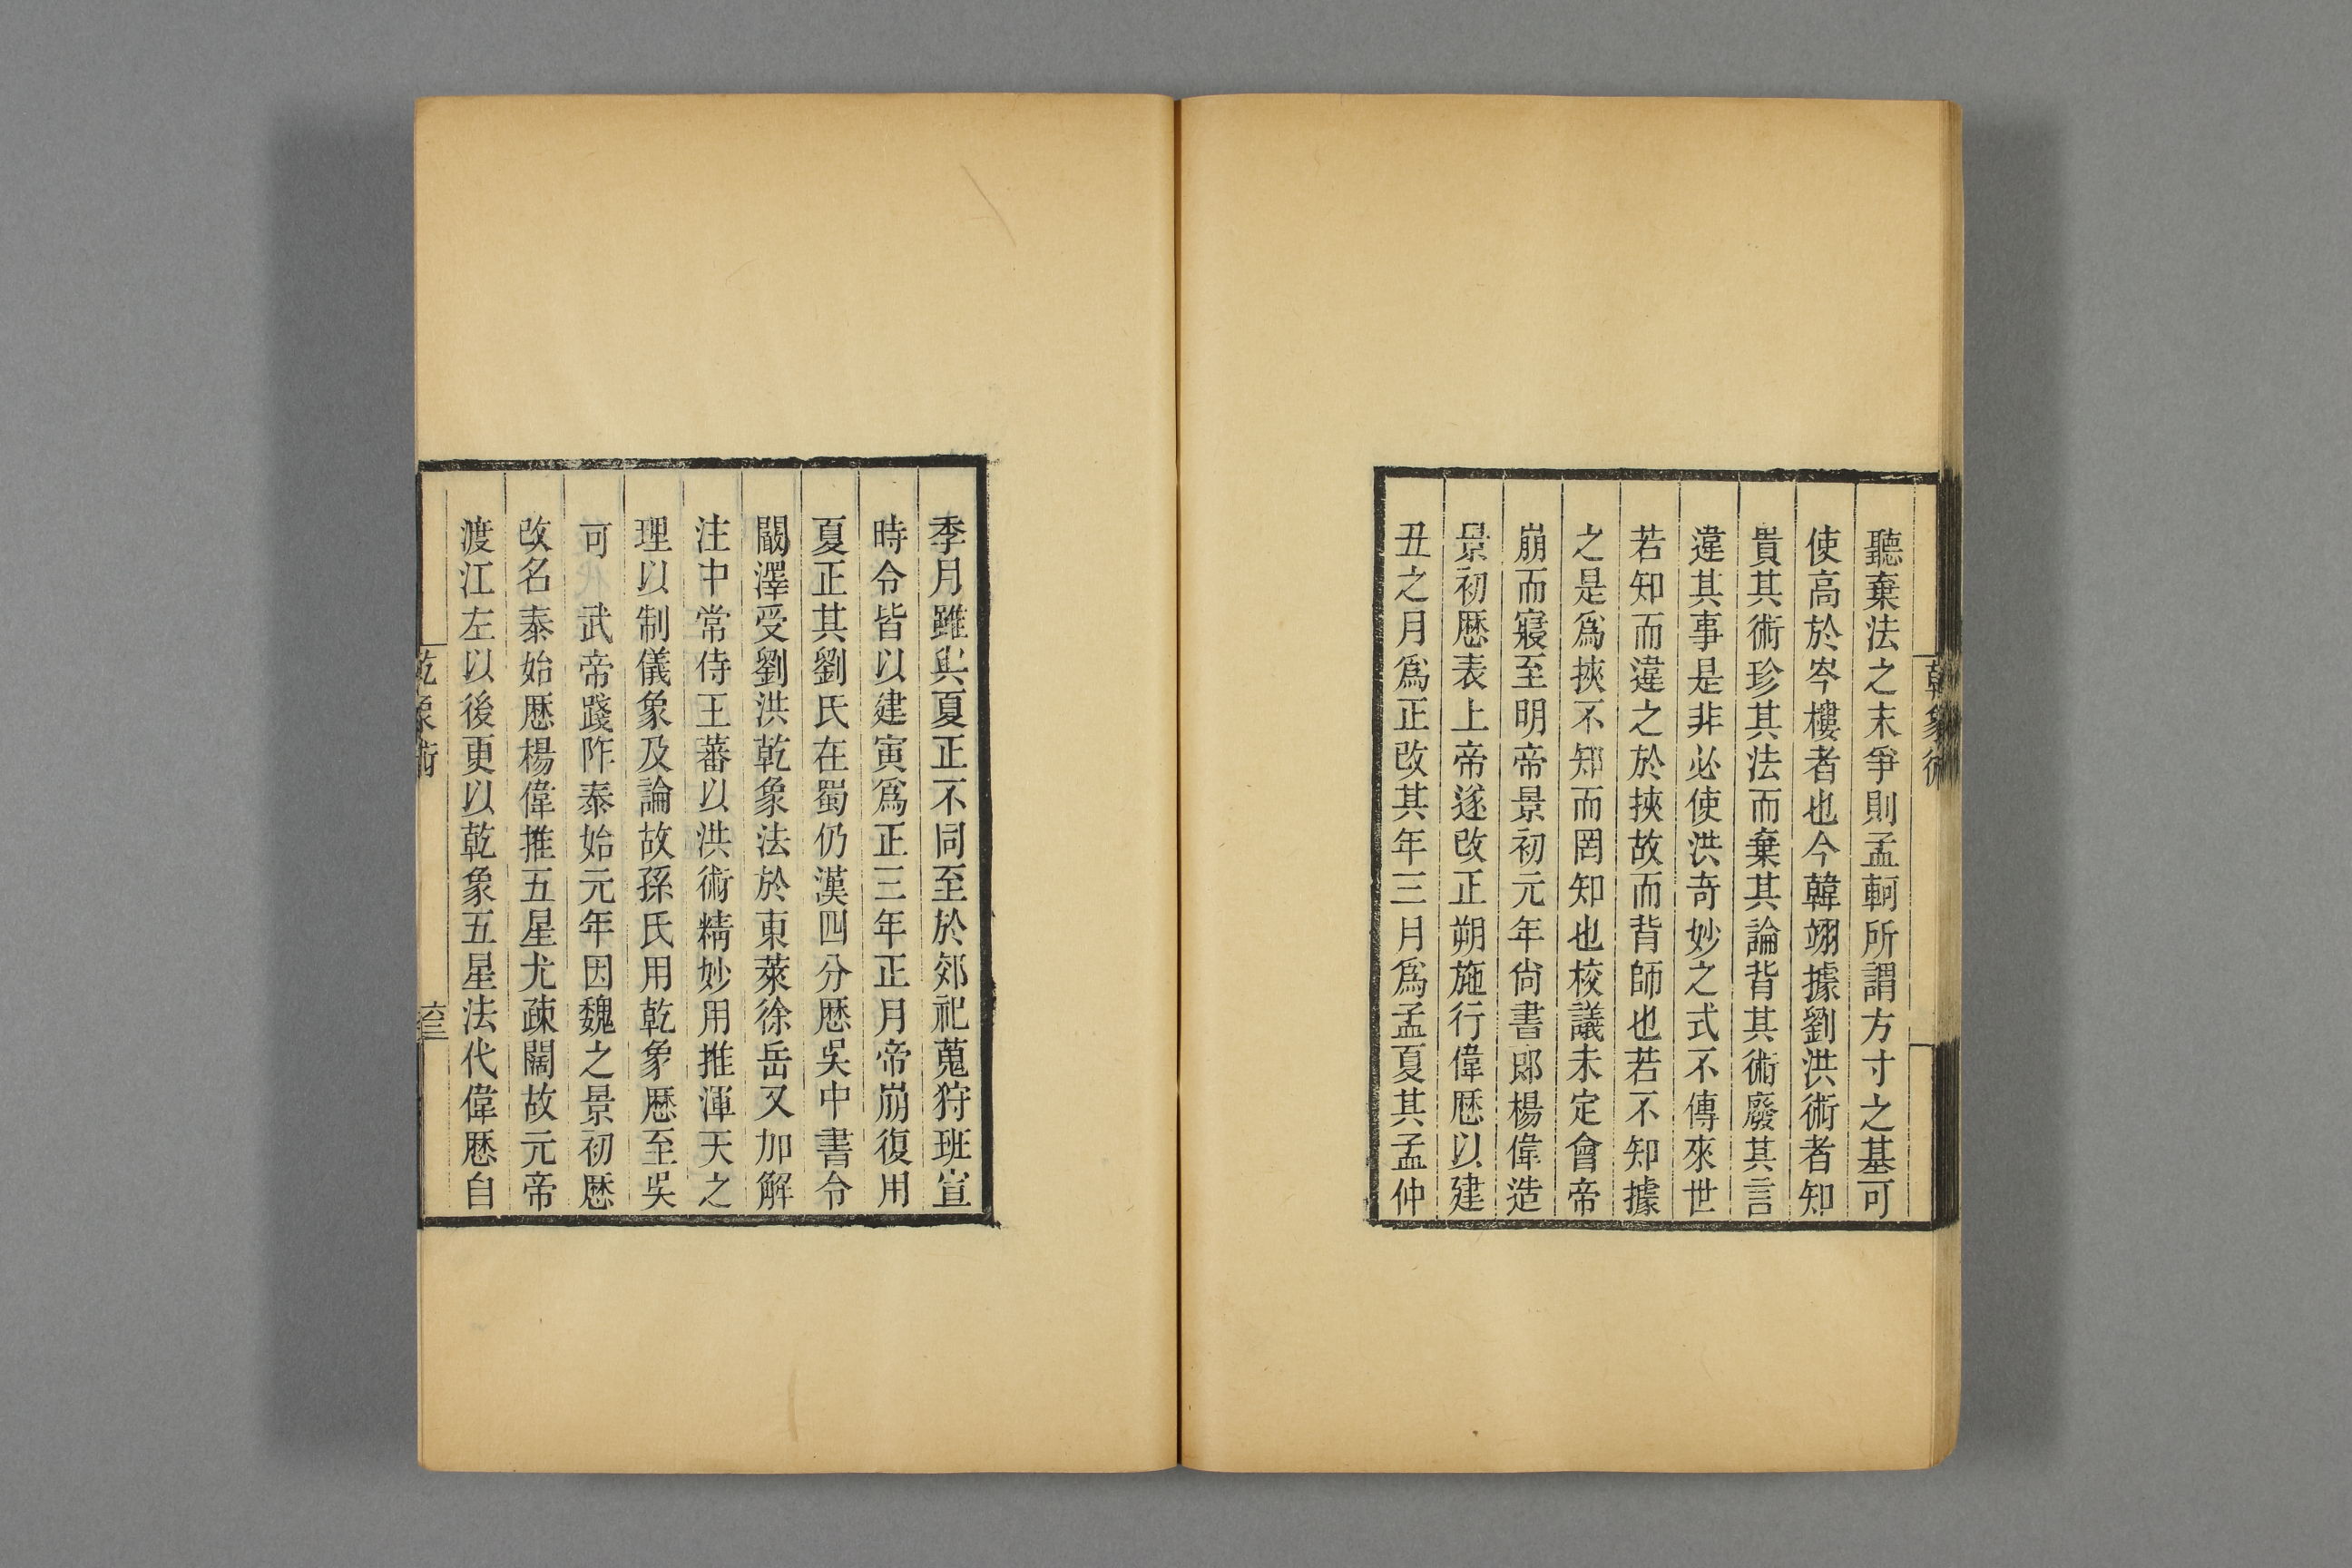 乾象術
聽棄法之末爭則孟軻所謂方寸之基可
使高於岑樓者也今韓翊據劉洪術者知
貴其術珍其法而棄其論背其術廢其言
違其事是非必使洪奇妙之式不傳來世
若知而違之於挾故而背師也若不知據
之是爲挾不知而罔知也校議未定會帝
崩而寢至明帝景初元年尙書郎楊偉造
景初厯表上帝遂改正朔施行偉厯以建
丑之月爲正改其年三月爲孟夏其孟仲
季月雖與夏正不同至於郊祀蒐狩班宣
時令皆以建寅爲正三年正月帝崩復用
夏正其劉氏在蜀仍漢四分厯吳中書令
闞澤受劉洪乾象法於東萊徐岳又加解
注中常侍王蕃以洪術精妙用推渾天之
理以制儀象及論故孫氏用乾象厯至吳
可　武帝踐阼泰始元年因魏之景初厯
改名泰始厯楊偉推五星尤疎闊故元帝
渡江左以後更以乾象五星法代偉厯自
乾象術